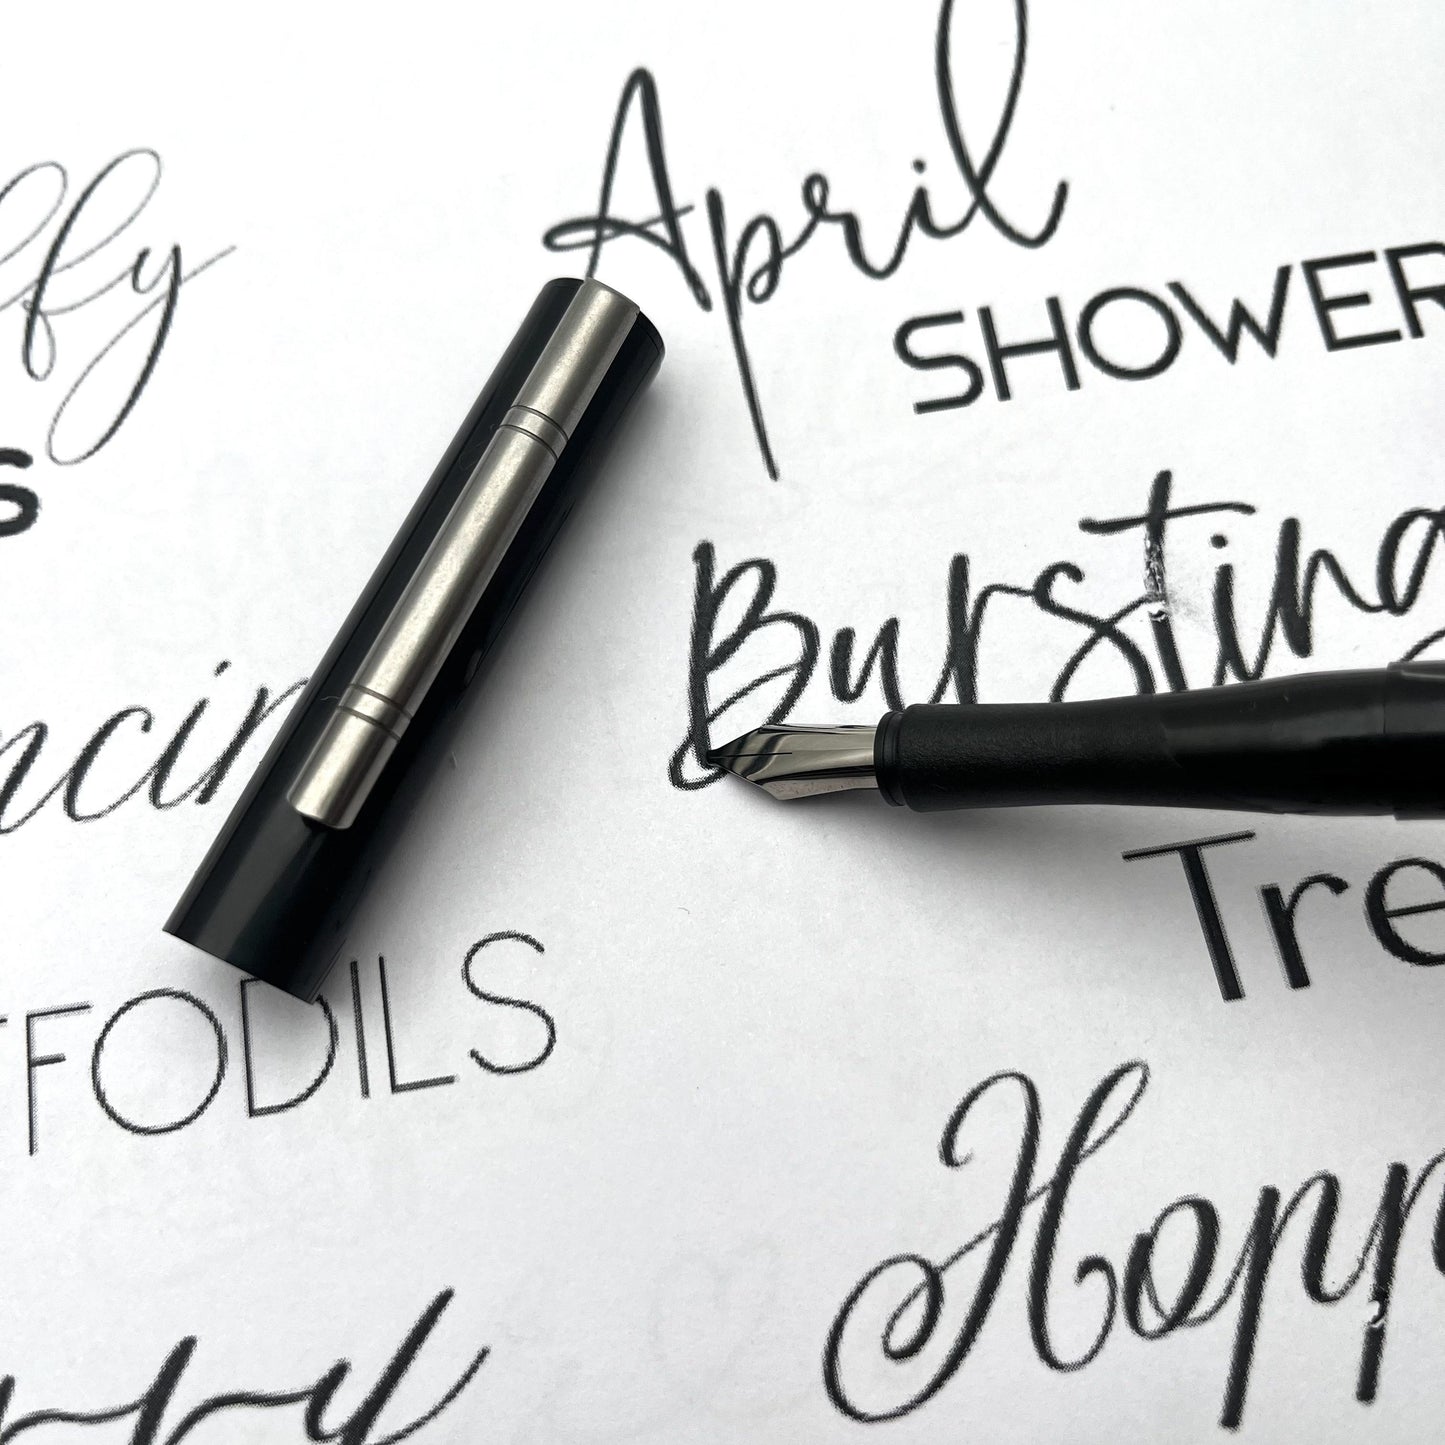 ffy
April
SHOWER
s
Bursting
ncin
Tre
FFODILS
Hopp